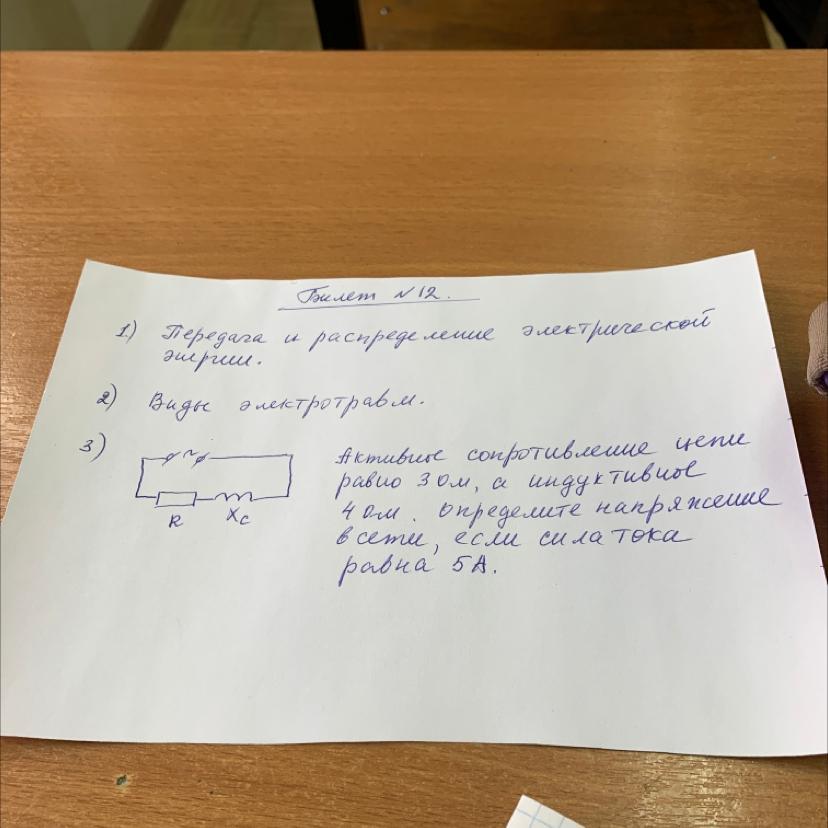 Билет №12.
1) Передача и распределение электрической
энергии.
2) Виды электротравм.
3)
Активное сопротивление цепи
равно 3 Ом, а индуктивное
4 Ом. Определите напряжение
в сети, если сила тока
равна 5А.
~
R Xc